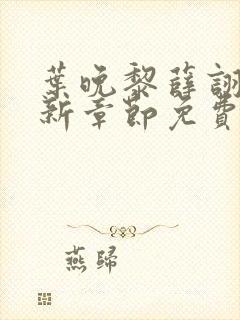 葉晚黎薛詡
新章節免費
燕歸